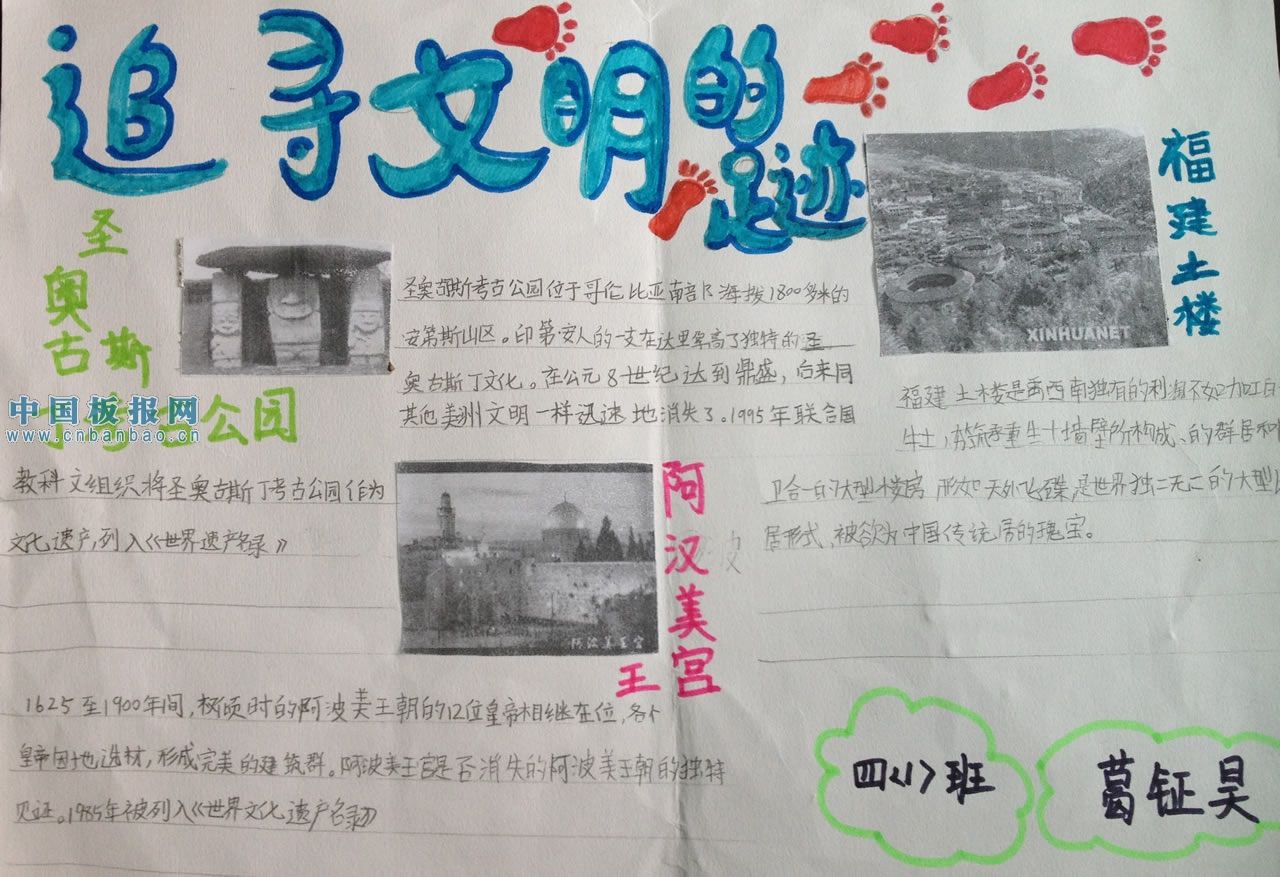 追寻文明的
足迹
圣
奥
古斯
公园
中国板报网
www.cnbanbao.cn
圣奥古斯考古公园位于哥伦比亚南部海拔1800多米的
安第斯山区。印第安人的一支在这里
奥古斯丁文化。在公元8世纪达到鼎盛，后来同
其他美洲文明一样迅速地消失了.1995年联合国
教科文组织将圣奥古斯丁考古公园作为
文化遗产,列入《世界遗产名录》
福建土楼
XINHUANET
福建土楼是
墙壁所构成、的群居和
卫合一的大型楼房 形如天外飞碟,是世界独一无二的大型
居形式,被 为中国传统 居的瑰宝。
阿汉美宫
王
阿波美王宫
1625至1900年间, 时的阿波美王朝的12位皇帝相继在位,各个
皇帝因地选材,形成完美的建筑群。阿波美王宫是否消失的阿波美王朝的独特
见证。1985年被列入《世界文化遗产名录》
四<1>班
葛钲昊